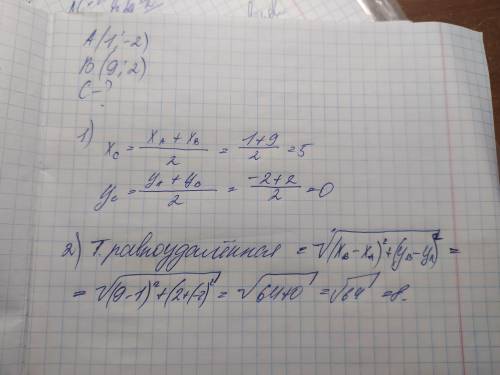 A(1;-2)
B(9;2)
C-?
1) x_c = (x_A + x_B)/2 = (1+9)/2 = 5
y_c = (y_A + y_B)/2 = (-2+2)/2 = 0
2) Т. равноудалённая = √((x_B - x_A)² + (y_B - y_A)²) =
= √((9-1)² + (2+(-2))²) = √(64+0) = √64 = 8.